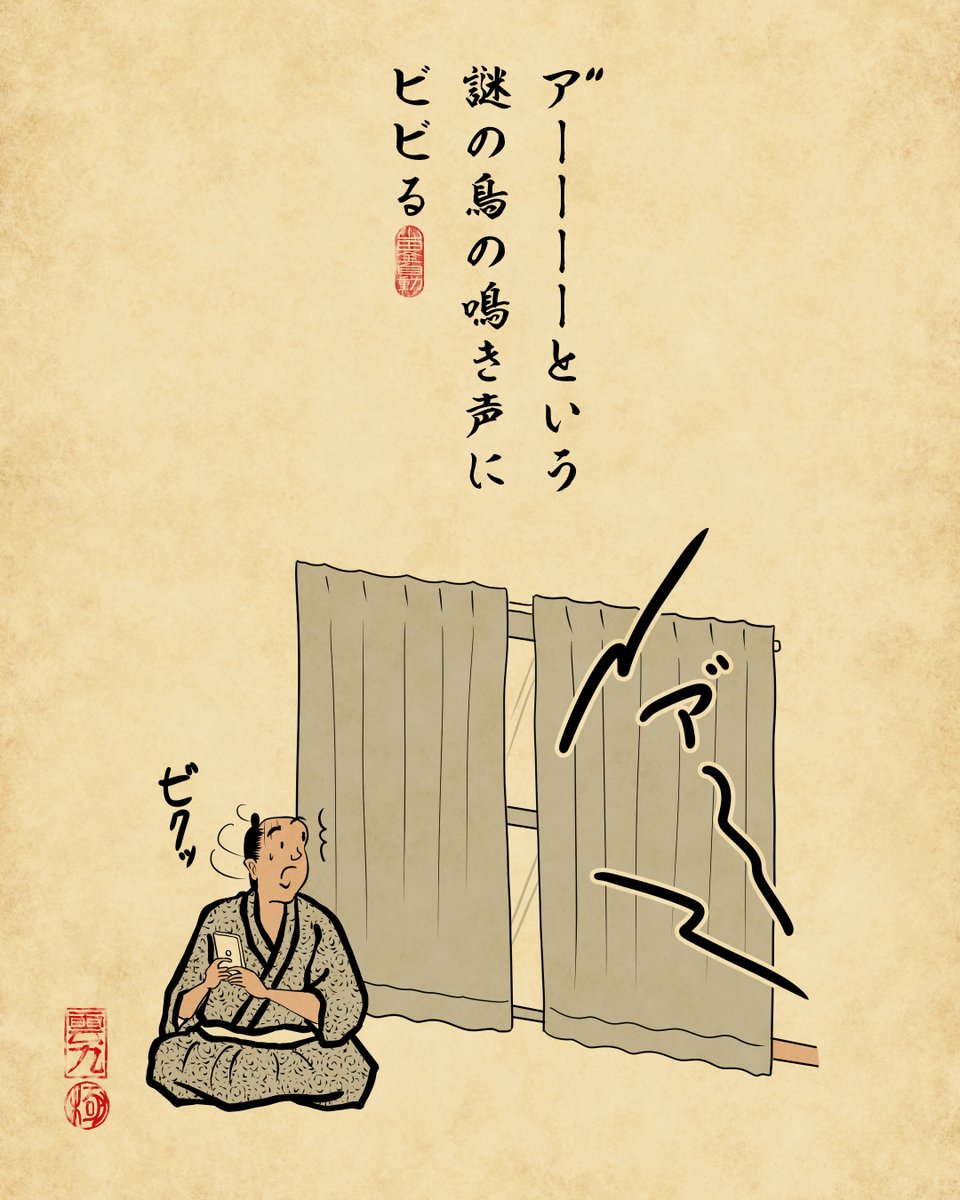 ア゛ーーーーという
謎の鳥の鳴き声に
ビビる
ア゛ー
ビクッ